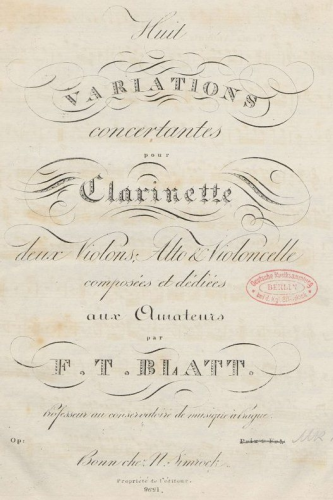 Huit
VARIATIONS
concertantes
pour
Clarinette
deux Violons; Alto & Violoncelle
composées et dédiées
aux Amateurs
par
F. T. BLATT.
Professeur au conservatoire de musique à Prague.
Op:
Bonn chez N. Simrock.
Propriété de l'éditeur.
BERLIN